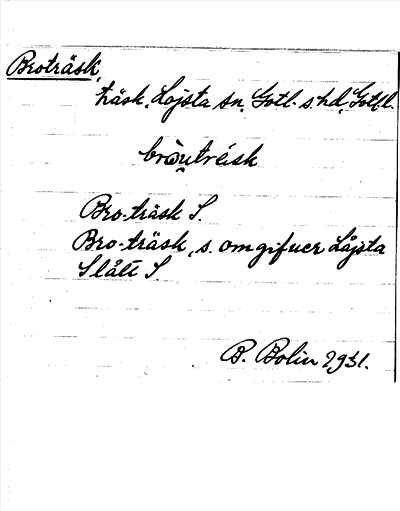 Broträsk,
träsk, Lojsta sn, Gotl. s. hd, Gotl. l.
bròutréisk
Bro-träsk S.
Bro-träsk, s. om gifver Låjsta
Slått S.
B. Bolin 1931.